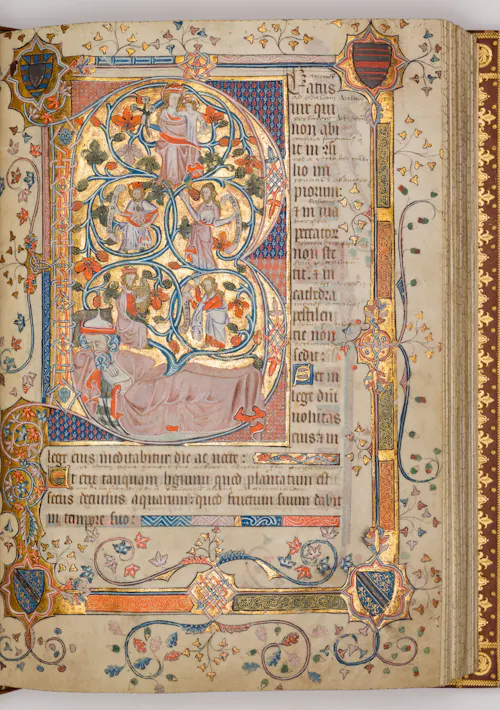 Beatus
uir qui
non abi
it in ꝯsi
lio im
piorum:
⁊ in uia
peccatoꝝ
non ste
tit: ⁊ in
cathedra
pestilen
tie non
sedit:
Set in
lege dn̄i
uoluntas
eius ⁊ in
lege eius meditabitur die ac nocte:
Et erit tanquam lignum quod plantatum est
secus decursus aquarum: quod fructum suum dabit
in tempore suo: